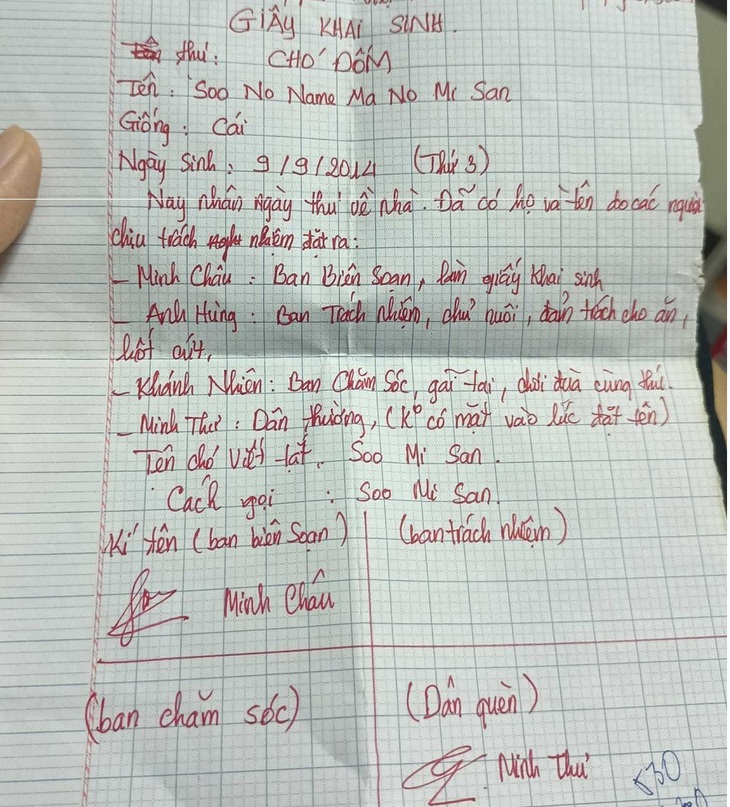 GIẤY KHAI SINH.
thú: CHÓ ĐỐM
Tên: Soo No Name Ma No Mi San
Giống: Cái
Ngày sinh: 9/9/2014 (Thứ 3)
Nay nhân ngày thú về nhà. Đã có họ và tên do các người
chịu trách nhiệm đặt ra:
- Minh Châu: Ban Biên Soạn, làm giấy khai sinh
- Anh Hùng: Ban Trách Nhiệm, chủ nuôi, đảm trách cho ăn,
hốt cứt,
- Khánh Nhiên: Ban Chăm Sóc, gãi tai, chơi đùa cùng thú.
- Minh Thư: Dân thường, (K° có mặt vào lúc đặt tên)
Tên chó viết tắt: Soo Mi San.
Cách gọi: Soo Mi San.
Kí tên (ban biên soạn) (ban trách nhiệm)
Minh Châu
(ban chăm sóc) (Dân quèn)
Minh Thư